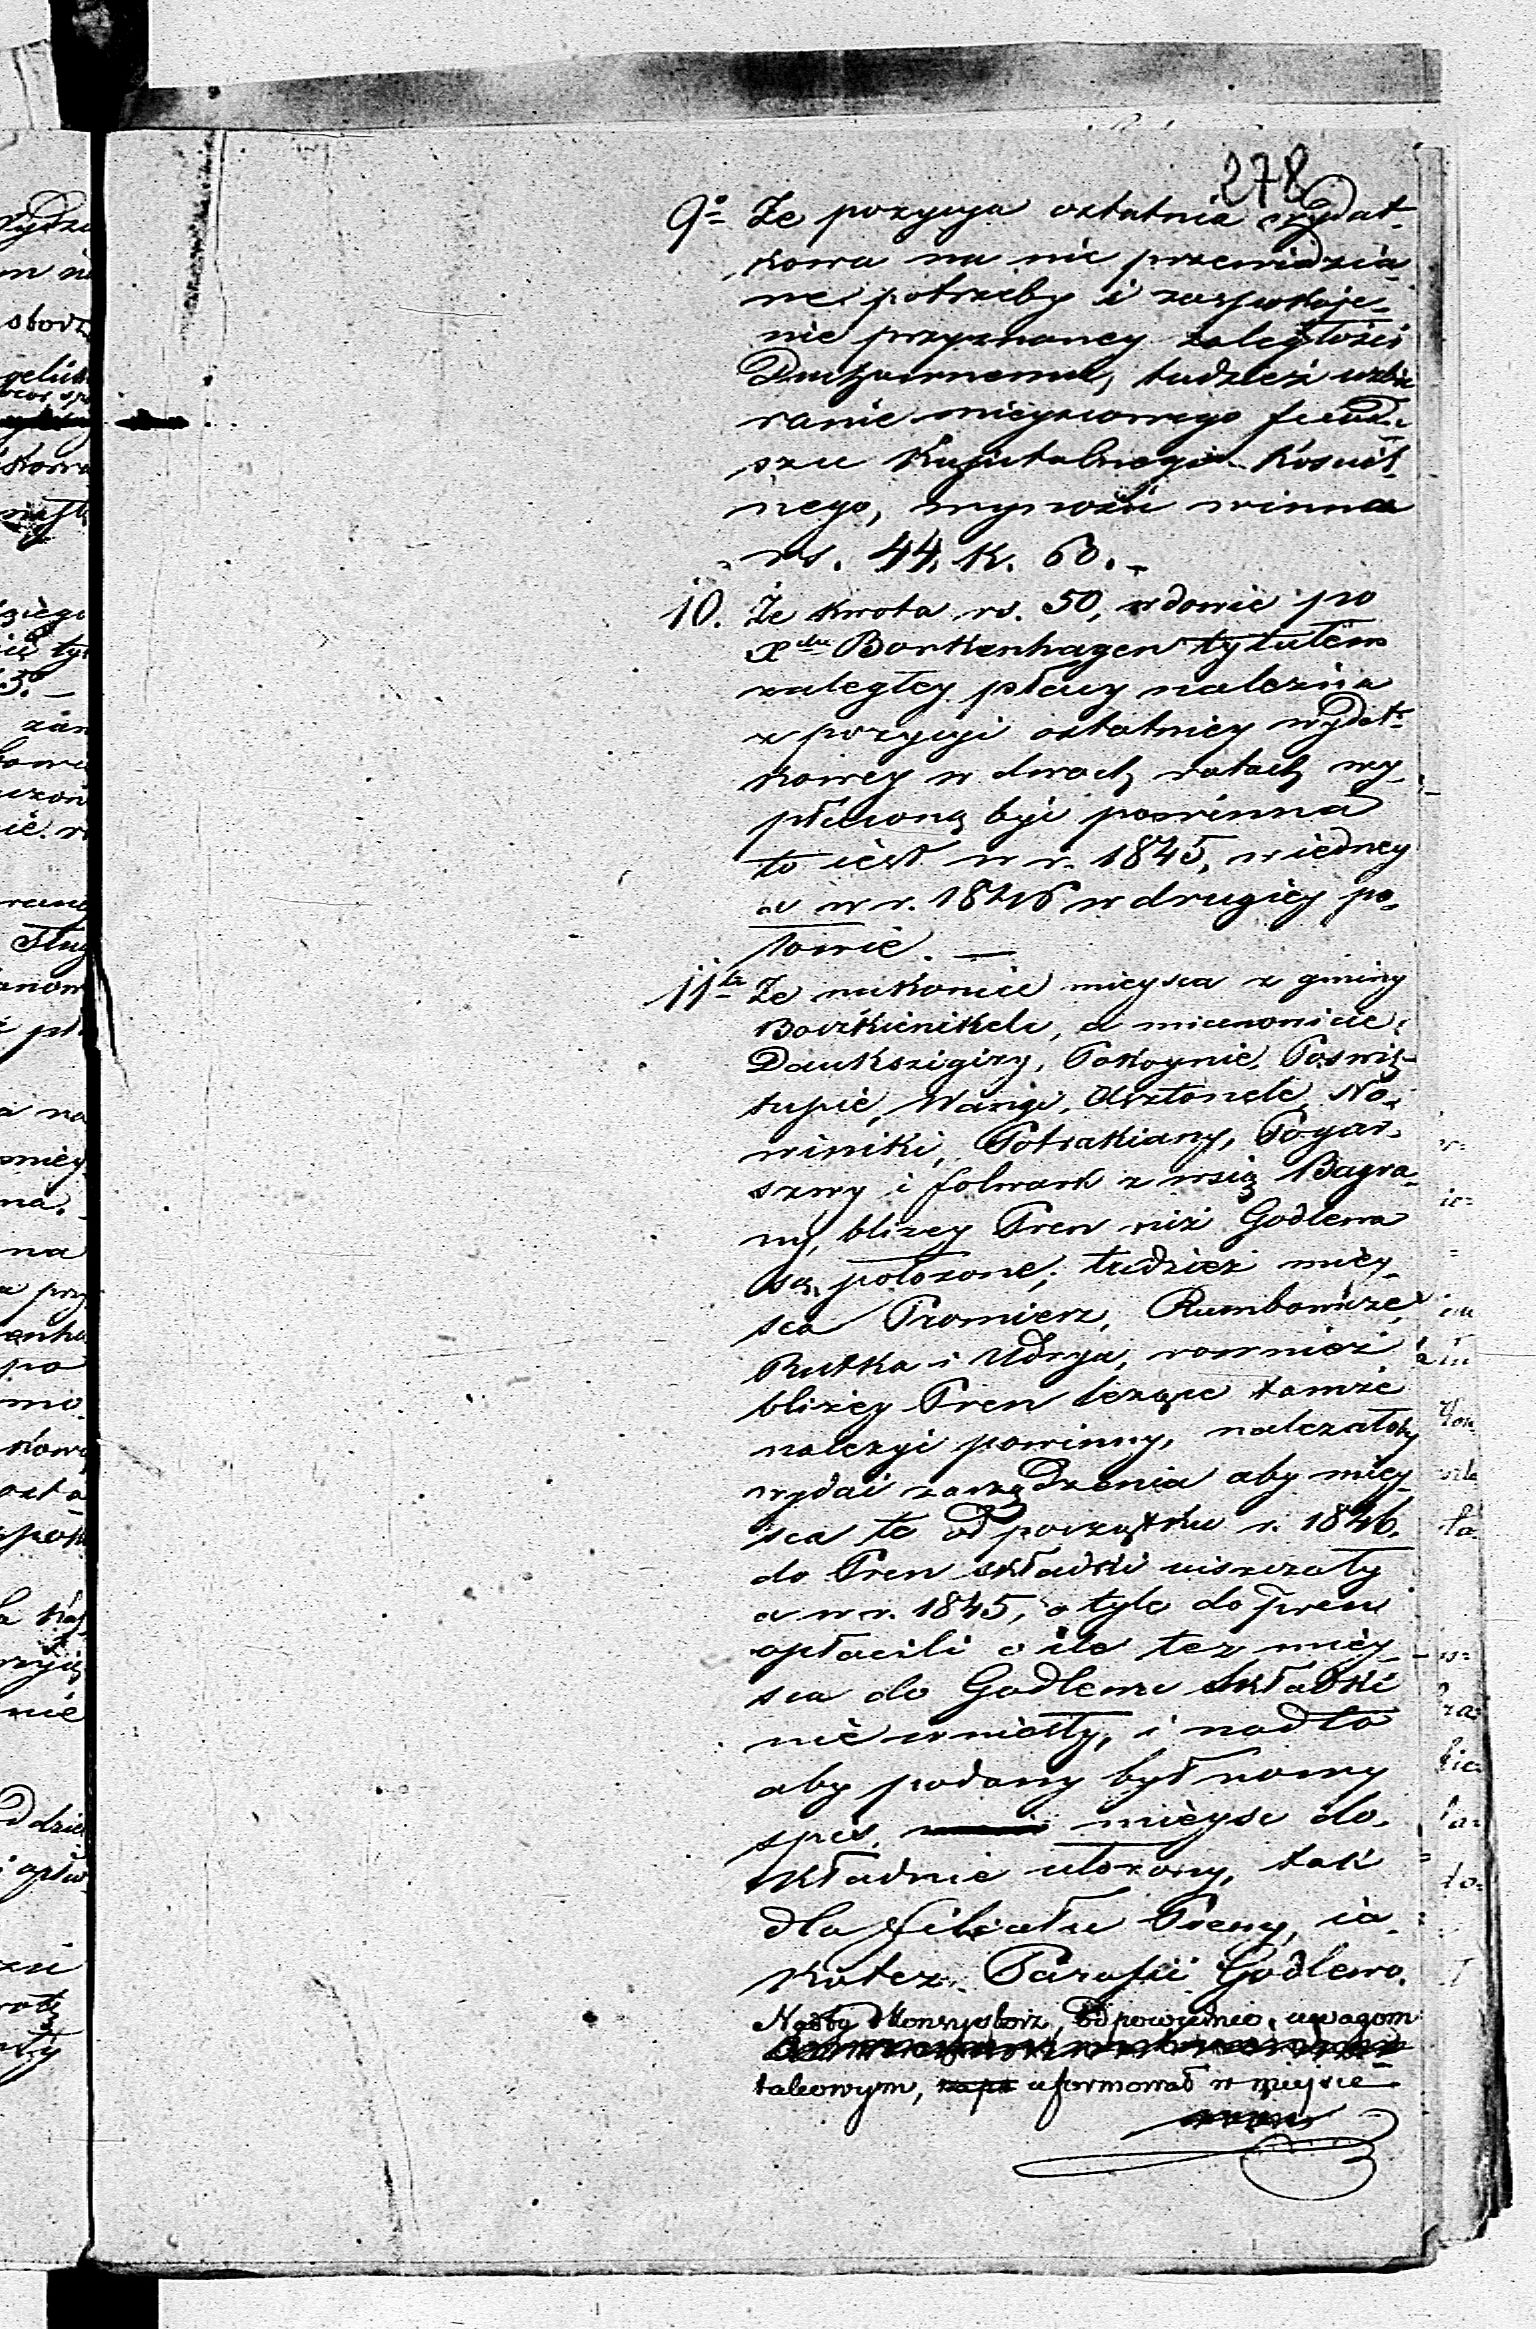 278
9o Że pozycya ostatnia wydat-
kowa na nie przewidzia-
ne potrzeby i zaspokoje-
nie przyznaney zaległości
Duchownemu, tudzież uzbie
ranie mieyscowego fundu-
szu Kapitalnego Kościel-
nego, wynosić winna
rs. 44. k. 60.-
10. Że kwota rs. 50, wdowie po
Xdzu Borkenhagen tytułem
zaległey płacy należna
z pozycyi ostatniey wydat-
kowey w dwoch ratach wy-
płaconą być powinna
to iest w r. 1845, w iedney
a w r. 1846 w drugiey po-
łowie. —
11te Że nakoniec mieysca z gminy
Boczkienikele, a mianowicie:
Daukszigiry, Pokoynie, Poswię-
tupie, Wangi, No-
winiki, Potrakiany, Pogar-
szwy i folwark z wsią Bagra-
ny, bliżey Pren niż Godlewa
są położone; tudzież miey-
sca Promierz, Rumbowicze,
Rutka i Udrya, rownież
bliżey Pren leżące tamże
należyć powinny, należałoby
wydać zarządzenia aby miey-
sca te od początku r. 1846.
do Pren składki uiszczały
a w r. 1845, o tyle do Pren
opłacili o ile też miey-
sca do Godlewa składki
nie wniosły, i nadto
aby podany był nowy
spis mieysc do-
kładnie ułożony, tak
dla filiału Preny, ia-
kotez Parafii Godlewo.
Nadto Konsystorz, odpowiednio uwagom
takowym, uformował w mieysce